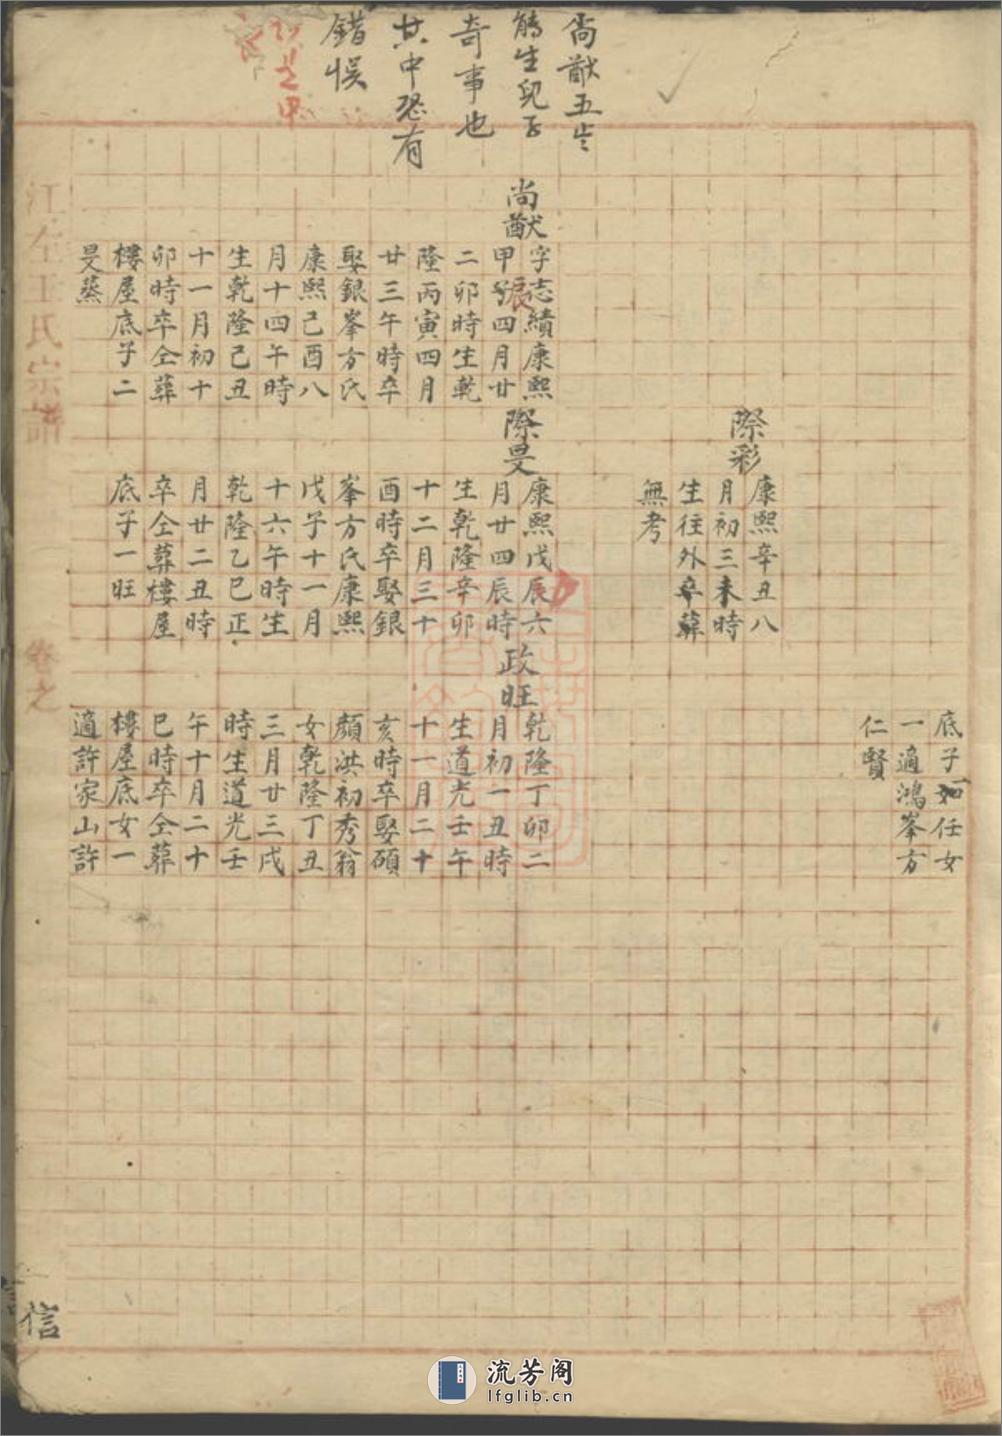 尚猷五歲
能生兒子
奇事也
其中恐有
錯悞
底子如任女
一適鴻峯方
仁賢
際彩
康熙辛丑八
月初三未時
生往外卒葬
無考
尚猷
字志績康熙
甲子四月廿
辰
二卯時生乾
隆丙寅四月
廿三午時卒
娶銀峯方氏
康熙己酉八
月十四午時
生乾隆己丑
十一月初十
卯時卒仝葬
樓屋底子二
旻蒸
際旻
康熙戊辰六
月廿四辰時
生乾隆辛卯
十二月三十
酉時卒娶銀
峯方氏康熙
戊子十一月
十六午時生
乾隆乙巳正
月廿二丑時
卒仝葬樓屋
底子一旺
政旺
乾隆丁卯二
月初一丑時
生道光壬午
十一月二十
亥時卒娶碩
顏洪初秀翁
女乾隆丁丑
三月廿三戌
時生道光壬
午十月二十
巳時卒仝葬
樓屋底女一
適許家山許
江左王氏宗譜
卷之
信
流芳阁
lfglib.cn